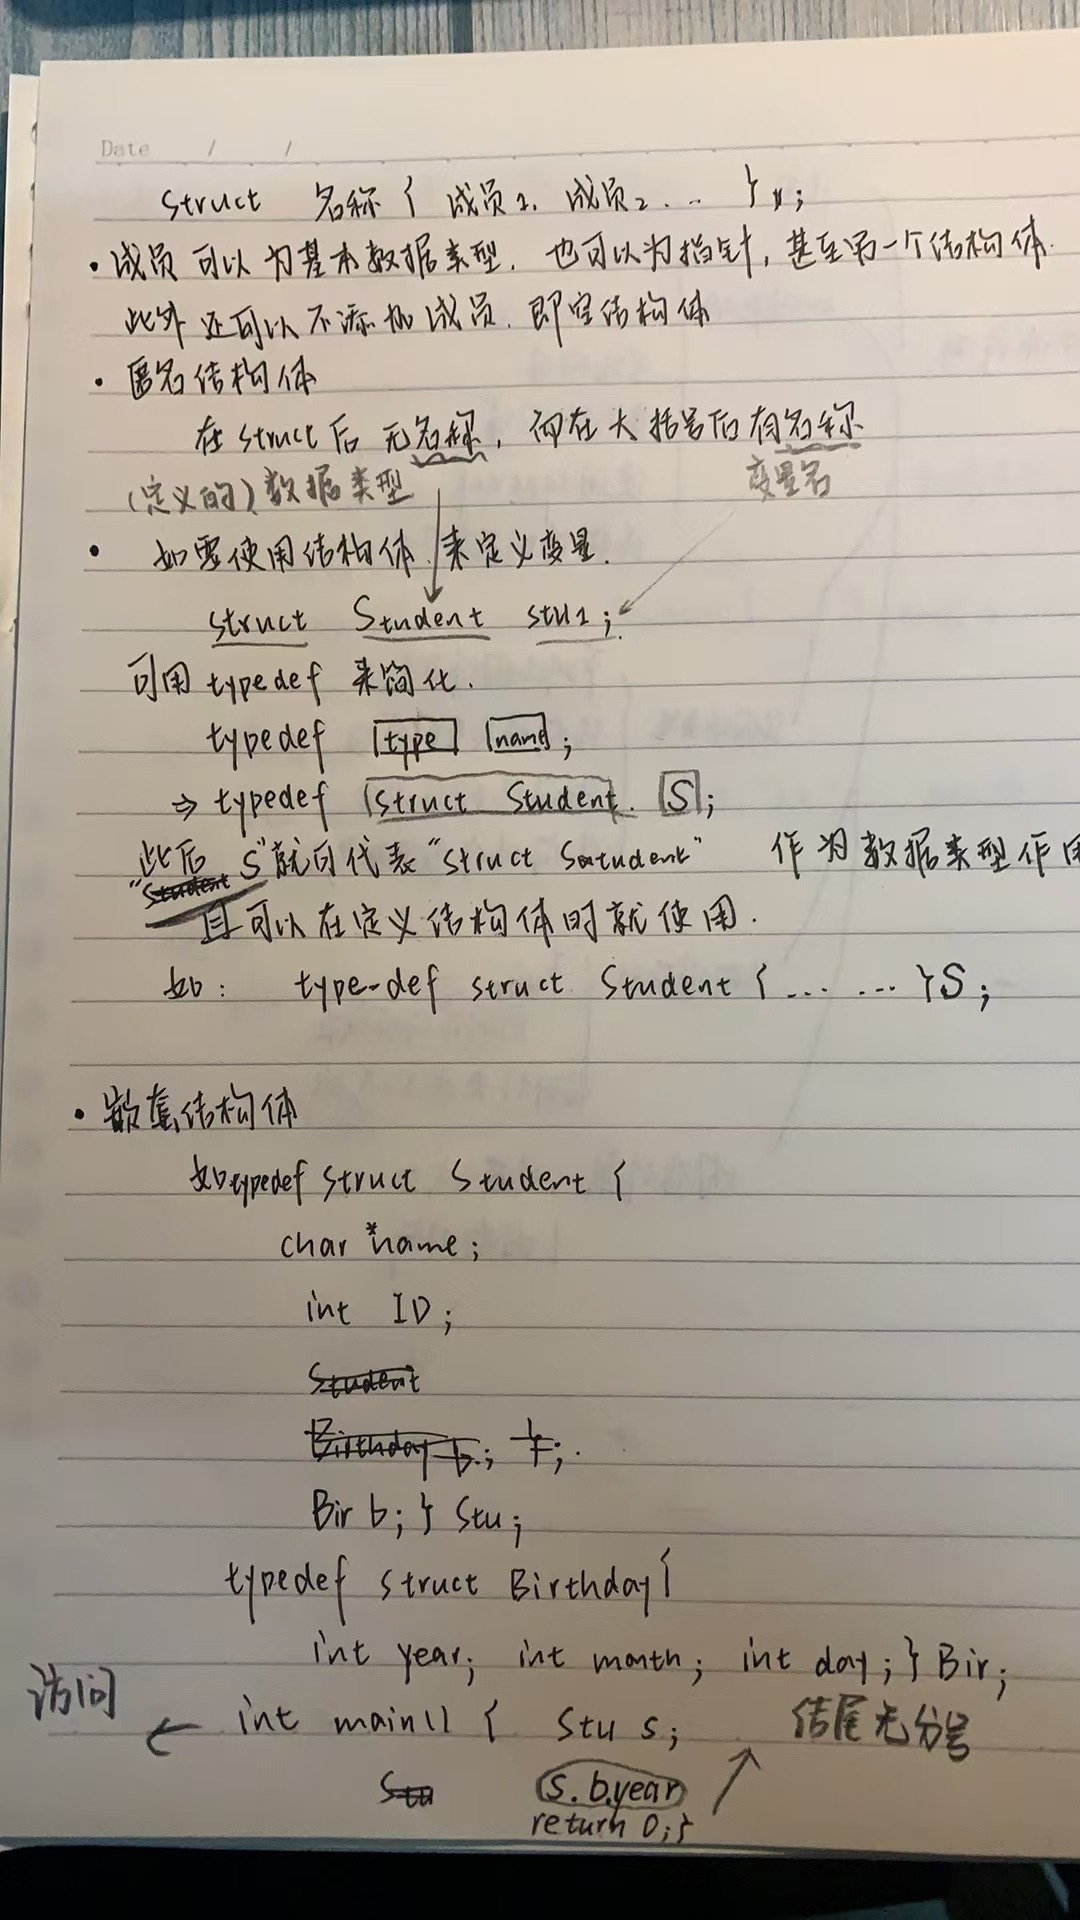 Date / /
struct 名称 { 成员1, 成员2 ... };
· 成员可以为基本数据类型, 也可以为指针, 甚至另一个结构体.
此外还可以不添加成员, 即空结构体
· 匿名结构体
在struct后无名称, 而在大括号后有名称
(定义的)数据类型 变量名
· 如需使用结构体来定义变量.
struct Student stu1;
可用typedef来简化.
typedef type name;
⇒ typedef struct Student S;
此后"S"就可代表"struct Satudent" 作为数据类型作用
且可以在定义结构体时就使用.
如: type-def struct Student { ... ... }S;
· 嵌套结构体
如typedef struct Student {
char *name;
int ID;
Student
Birthday b;
Bir b; } Stu;
typedef struct Birthday{
int year; int month; int day; } Bir;
访问 ← int main() { Stu s; 结尾无分号
Stu s.b.year
return 0;}